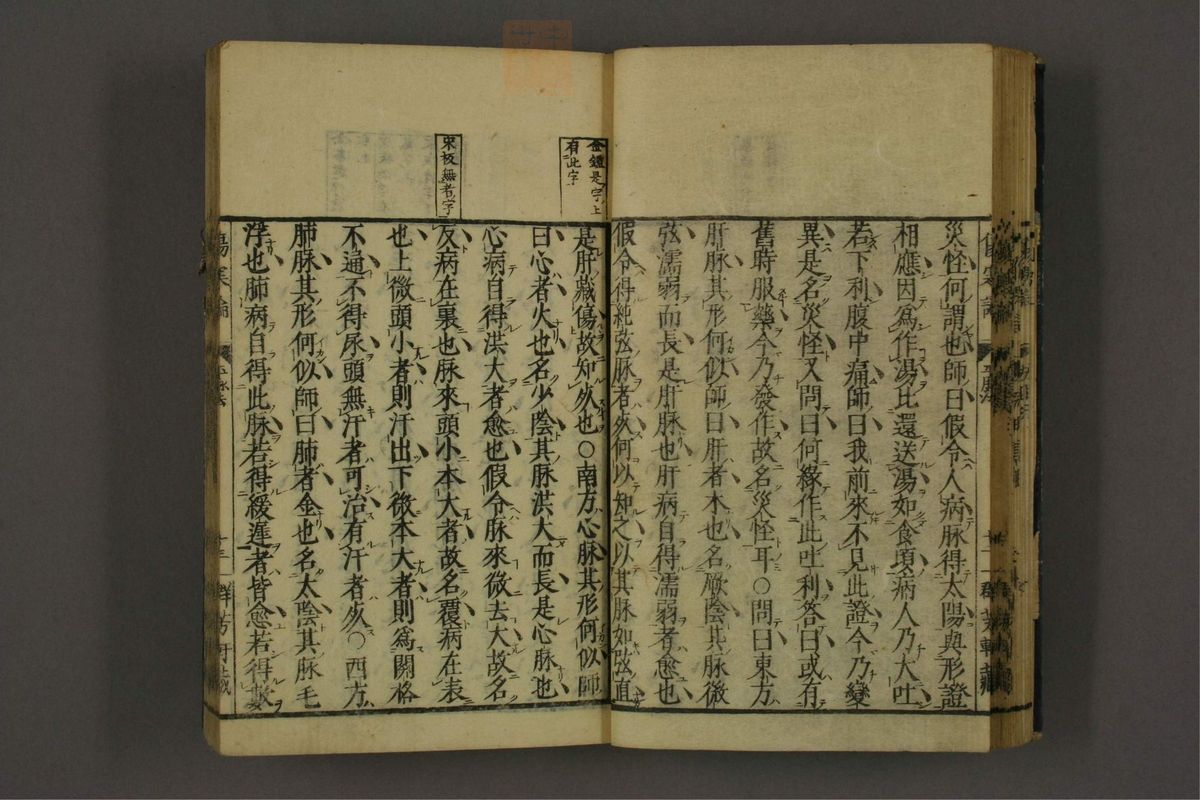 災怪何謂也師曰假令人病脉得太陽與形證
相應因爲作湯比還送湯如食頃病人乃大吐
若下利腹中痛師曰我前來不見此證今乃變
異是名災怪又問曰何緣作此吐利答曰或有
舊時服藥今乃發作故名災怪耳○問曰東方
肝脉其形何似師曰肝者木也名厥陰其脉微
弦濡弱而長是肝脉也肝病自得濡弱者愈也
假令得純弦脉者死何以知之以其脉如弦直
金鑑是字上
有此字
是肝藏傷故知死也○南方心脉其形何似師
曰心者火也名少陰其脉洪大而長是心脉也
心病自得洪大者愈也假令脉來微去大故名
宋板無者字
反病在裏也脉來頭小本大者故名覆病在表
也上微頭小者則汗出下微本大者則爲關格
不通不得尿頭無汗者可治有汗者死○西方
肺脉其形何似師曰肺者金也名太陰其脉毛
浮也肺病自得此脉若得緩遲者皆愈若得數
傷寒論
平脉法
十三